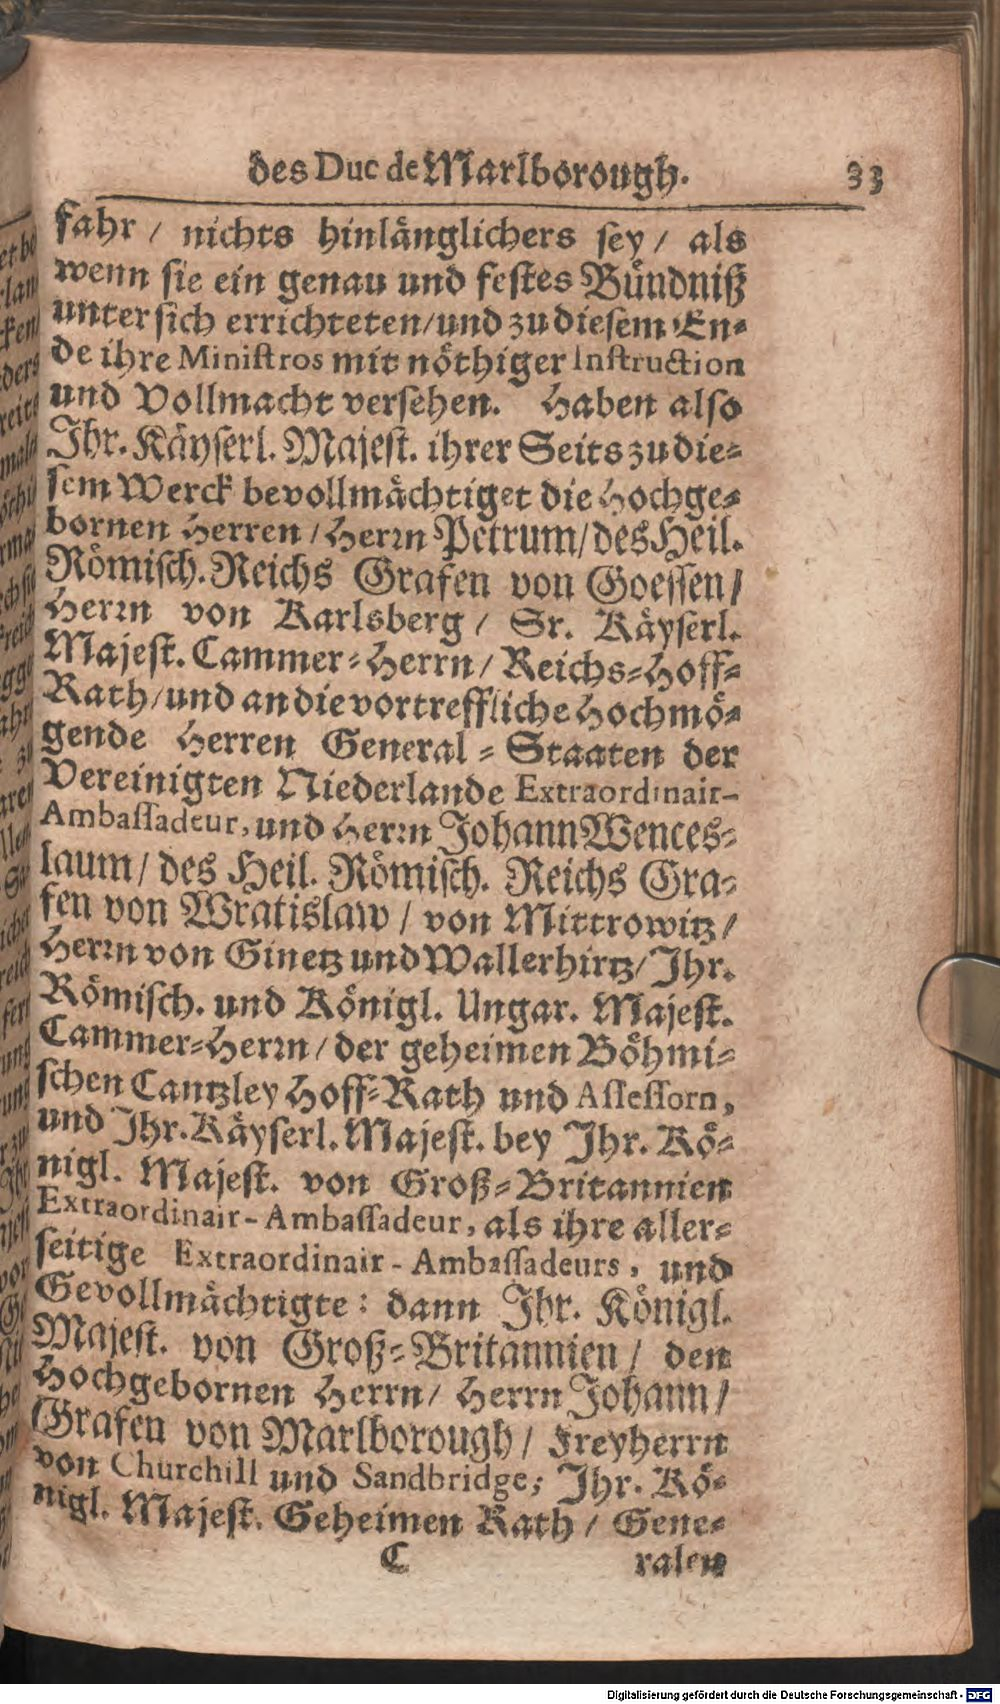 des Duc de Marlborough. 33
fahr / nichts hinlänglichers sey / als
wenn sie ein genau und festes Bündniß
unter sich errichteten/und zu diesem En-
de ihre Ministros mit nöthiger Instruction
und Vollmacht versehen. Haben also
Ihr. Käyserl. Majest. ihrer Seits zu die-
sem Werck bevollmächtiget die Hochge-
bornen Herren / Herrn Petrum/des Heil.
Römisch. Reichs Grafen von Goessen /
Herrn von Karlsberg / Sr. Käyserl.
Majest. Cammer-Herrn / Reichs-Hoff-
Rath/und an die vortreffliche Hochmö-
gende Herren General-Staaten der
Vereinigten Niederlande Extraordinair-
Ambassadeur, und Herrn Johann Wences-
laum / des Heil. Römisch. Reichs Gra-
fen von Wratislaw / von Mittrowitz /
Herrn von Ginetz und Wallerhirtz/ Ihr.
Römisch. und Königl. Ungar. Majest.
Cammer-Herrn / der geheimen Böhmi-
schen Cantzley Hoff-Rath und Assessorn,
und Ihr. Käyserl. Majest. bey Ihr. Kö-
nigl. Majest. von Groß-Britannien
Extraordinair-Ambassadeur, als ihre aller-
seitige Extraordinair-Ambassadeurs, und
Gevollmächtigte: dann Ihr. Königl.
Majest. von Groß-Britannien / den
Hochgebornen Herrn/ Herrn Johann /
Grafen von Marlborough / Freyherrn
von Churchill und Sandbridge; Ihr. Kö-
nigl. Majest. Geheimen Rath / Gene-
C ralen
Digitalisierung gefördert durch die Deutsche Forschungsgemeinschaft - DFG